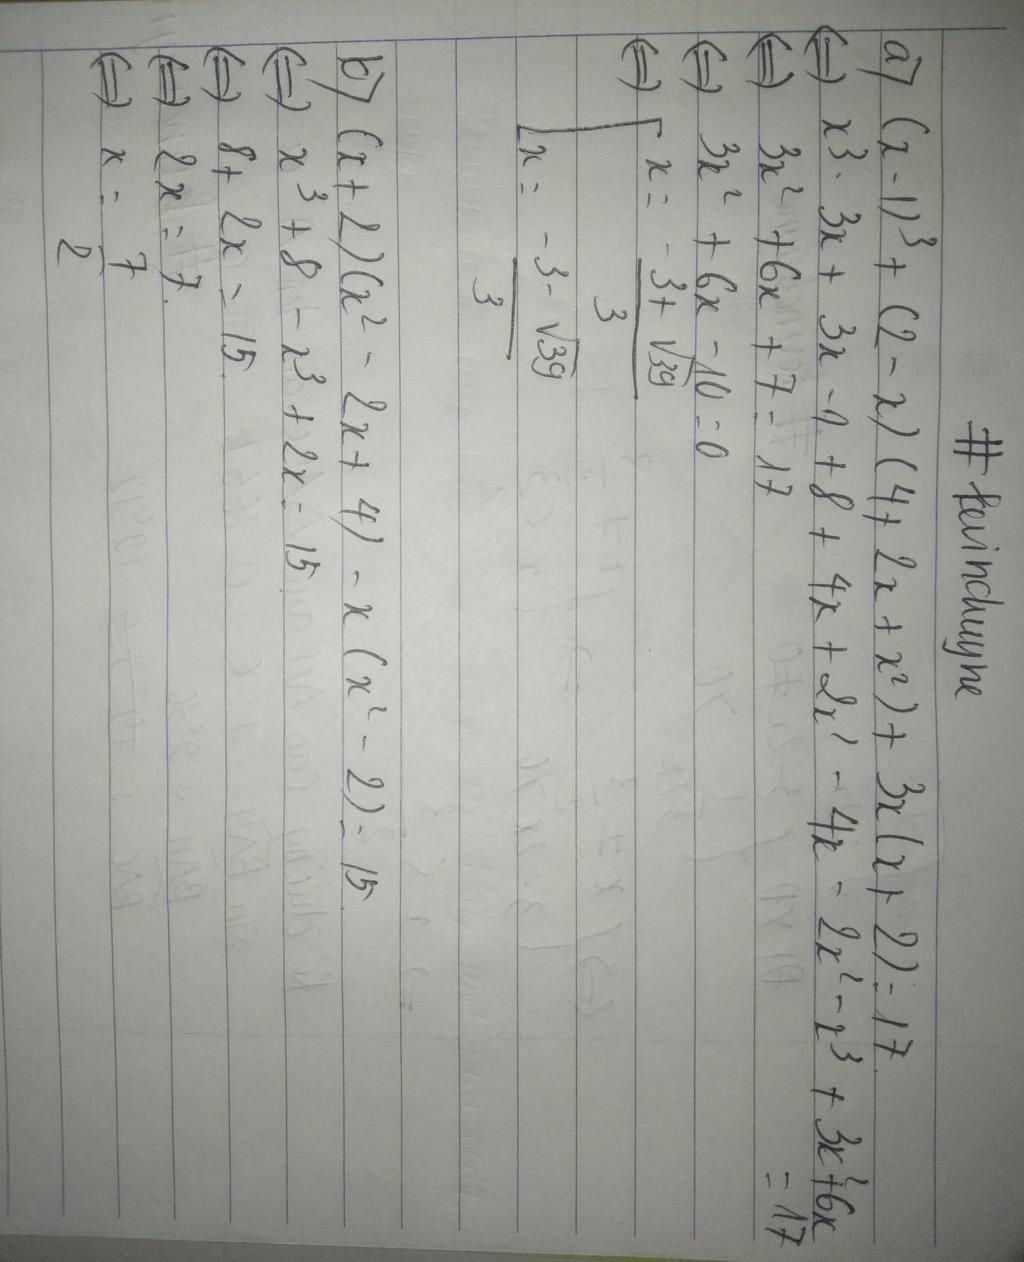 # kevinchuyne
a) (x-1)³ + (2-x)(4+2x+x²) + 3x(x+2) = 17
(=) x³ - 3x + 3x - 1 + 8 + 4x + 2x² - 4x - 2x² - x³ + 3x² + 6x
= 17
(=) 3x² + 6x + 7 = 17
(=) 3x² + 6x - 10 = 0
(=) [ x = -3+√39 / 3
[ x = -3-√39 / 3
b) (x+2)(x² - 2x + 4) - x(x² - 2) = 15
(=) x³ + 8 - x³ + 2x = 15
(=) 8 + 2x = 15
(=) 2x = 7
(=) x = 7/2